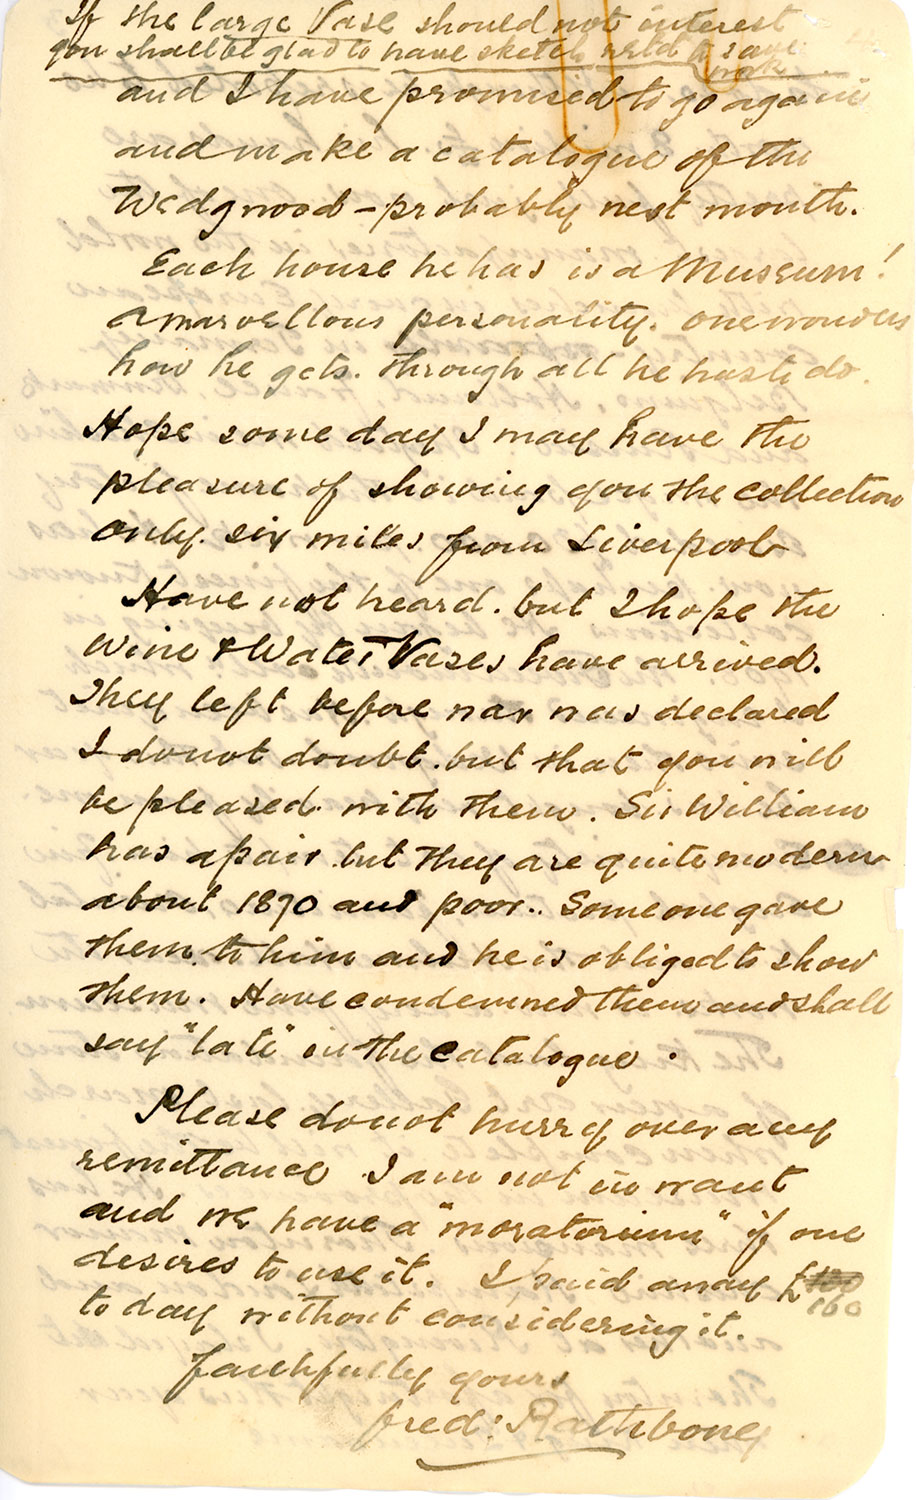 If the large Vase should not interest
you shall be glad to have sketch retd to save
work
and I have promised to go again
and make a catalogue of the
Wedgwood - probably next month.
Each house he has is a Museum!
a marvellous personality. one wonders
how he gets. through all he has to do.
Hope some day I may have the
pleasure of showing you the collection
only. six miles from Liverpool
Have not heard. but I hope the
Wine & Water Vases have arrived.
They left before war was declared
I do not doubt. but that you will
be pleased. with them. Sir William
has a pair but they are quite modern
about 1870 and poor.. Some one gave
them. to him and he is obliged to show
them. Have condemned them and shall
say "late" in the catalogue.
Please do not hurry over any
remittance I am not in want
and we have a "moratorium" if one
desires to use it. I paid away £
160
to day without considering it.
faithfully yours
fred: Rathbone